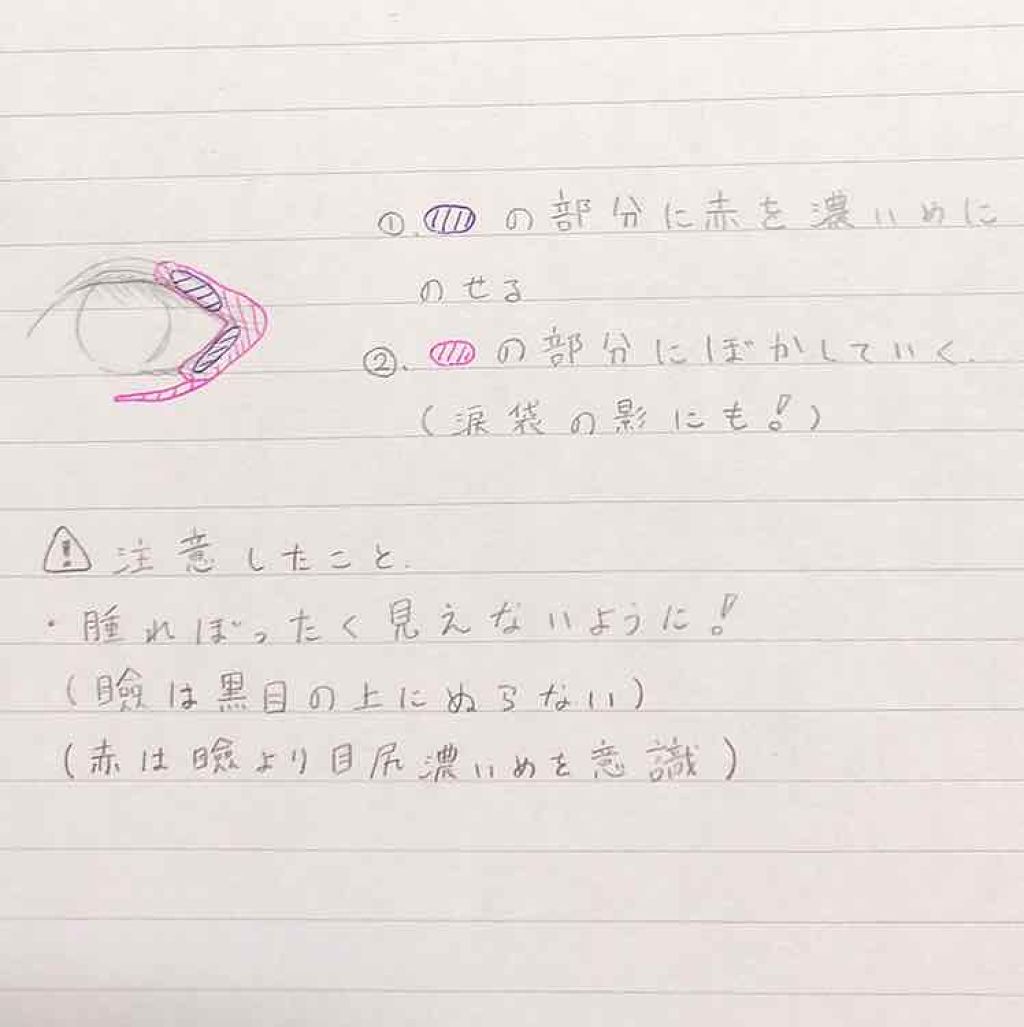 ①. の部分に赤を濃いめに
のせる
②. の部分にぼかしていく.
(涙袋の影にも!)
注意したこと.
・腫れぼったく見えないように!
(瞼は黒目の上にぬらない)
(赤は瞼より目尻濃いめを意識)